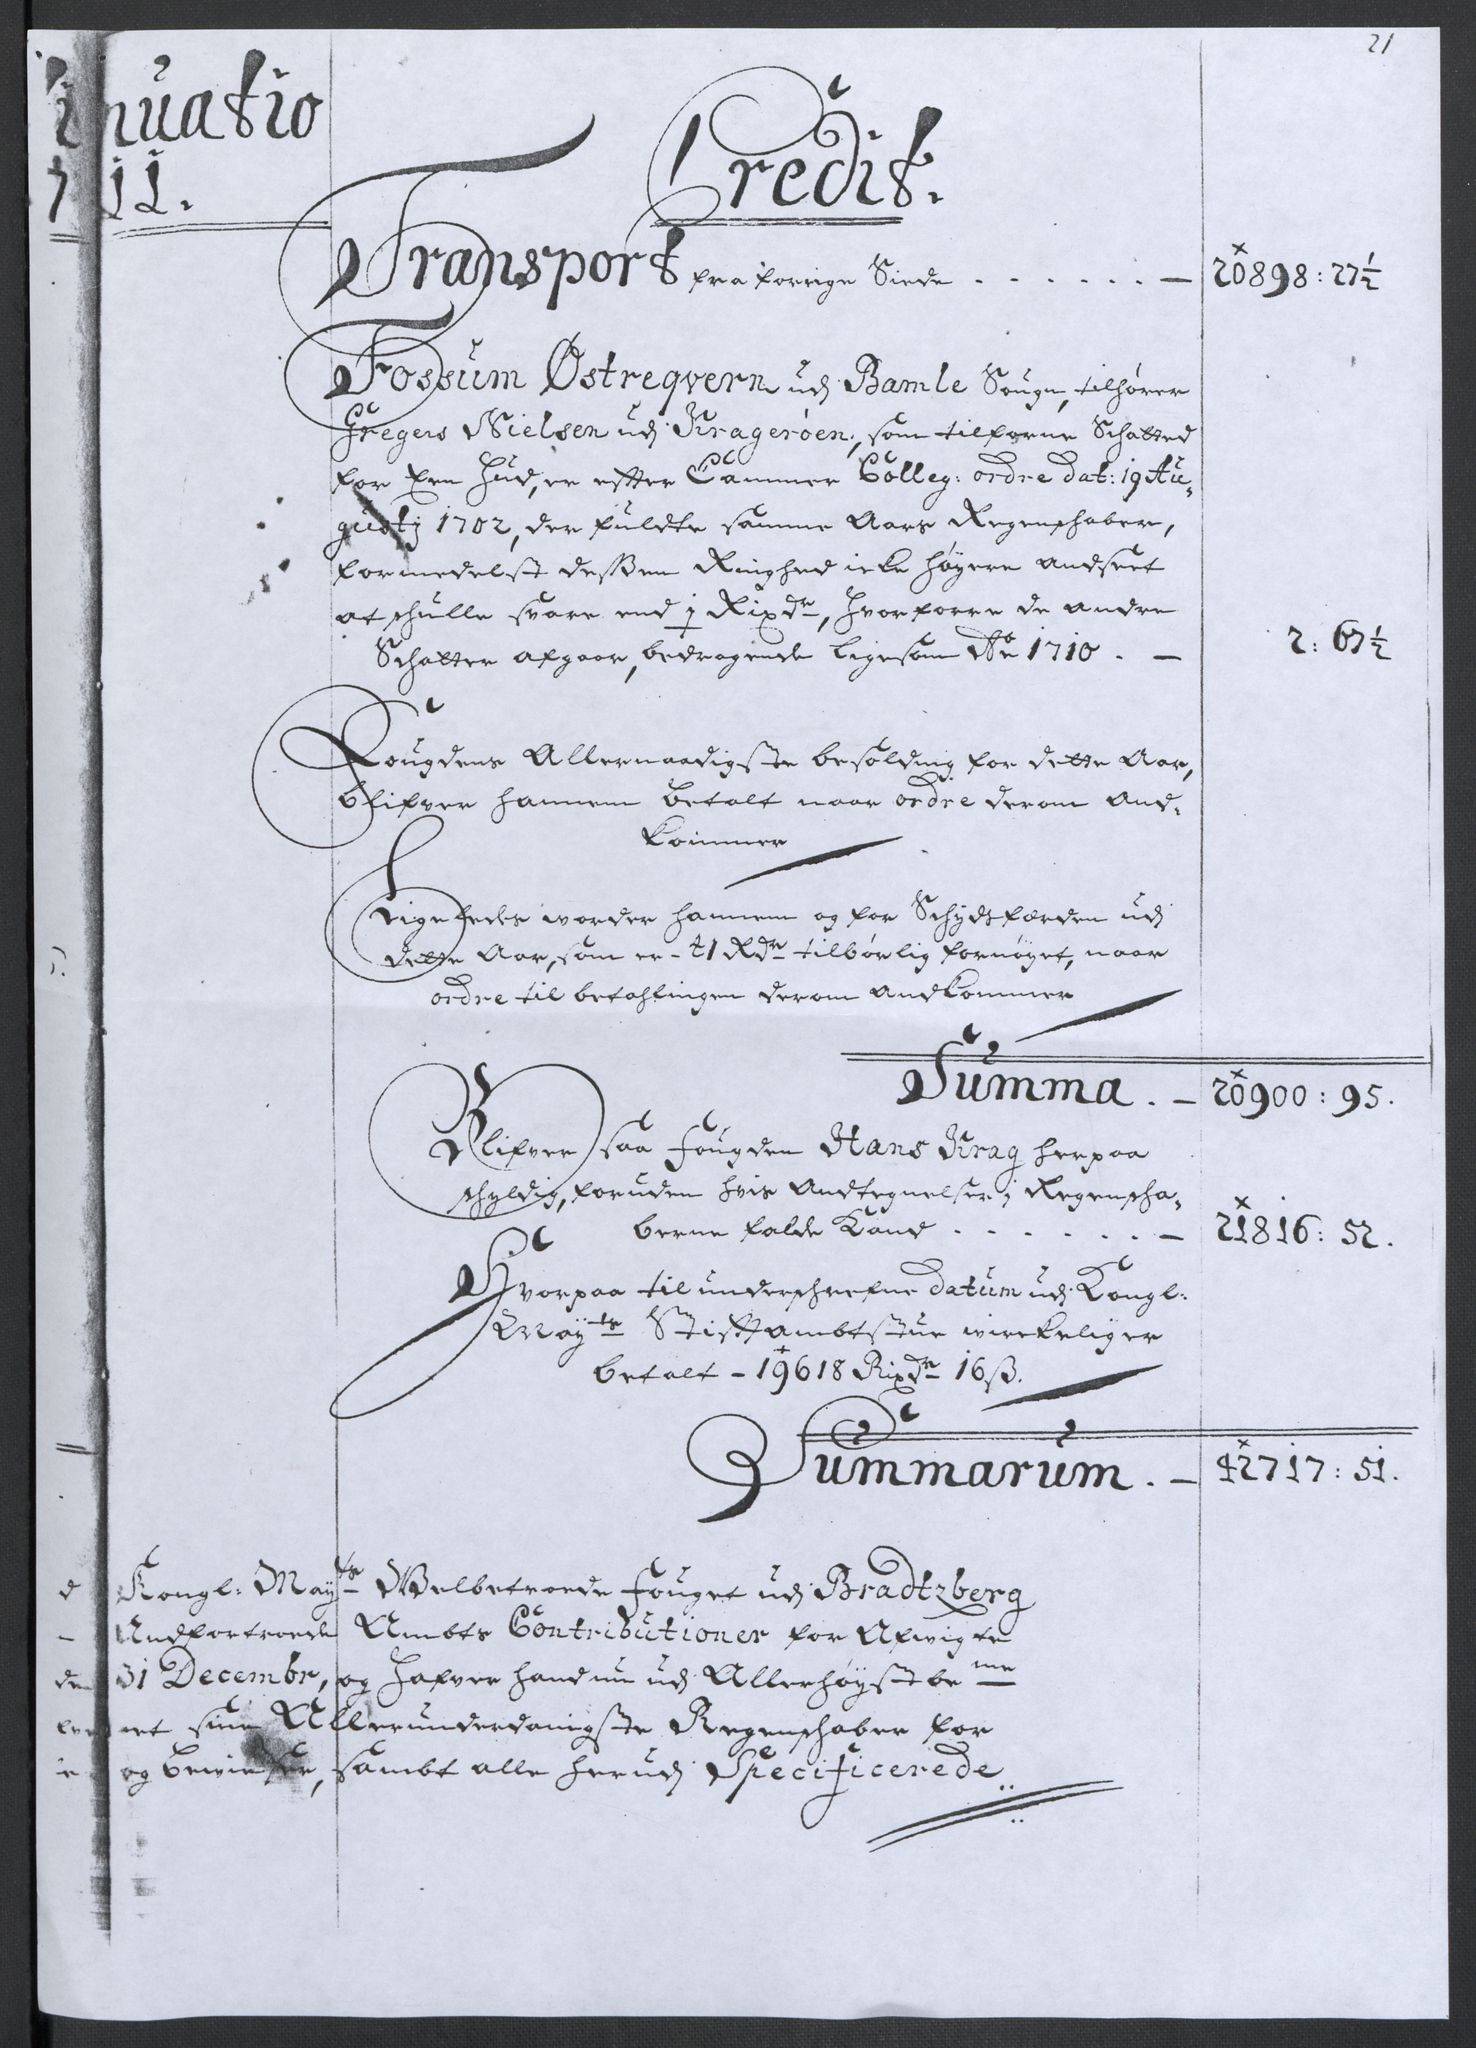 21
inuatio
Credit.
1711.
Transport fra forrige Siede . . . . . . — 20898: 27½
Fossum Østreqvern udj Bamle Sougn, tilhører
Gregers Nielsen udj Kragerøen, som tilforne Schatted
for Een Hud, er effter Cammer Colleg: ordre dat: 19 Au-
gustj 1702, der fuldte samme Aars Regenschaber,
formedelst dessen Ringhed icke høyere andseet
at schulle svare end 1 Rixdr, hvorforre de andre
Schatter afgaar, bedragende ligesom Ao 1710 . — 2: 67½
Fougdens Allernaadigste besolding for dette Aar,
blifver hannem betalt naar ordre derom And-
kommer
Ligeledes worder hannem og for Schydsfærden udj
dette Aar, som er - 41 Rdr tilbørlig fornøyet, naar
ordre til betahlingen derom andkommer
Summa . — 20900: 95.
Blifver saa fougden Hans Krag herpaa
schyldig, foruden hvis Andtegnelser j Regenscha-
berne falde Kand . . . . . . . — 21816: 52.
Hvorpaa til underschrefne datum udj Kongl:
Mayts Stifftambtstue wirckeligen
betalt - 19618 Rixdr 16 ß.
Summarum . — 42717: 51.
d Kongl: Mayts Welbetroede fouget udj Bradtzberg
- Andfortroede Ambts Contributioner for Afvigte
den 31 Decembr, og hafver hand nu udj Allerhøystbeme
net sine Allerunderdanigste Regenschaber for
og bevieser, sambt alle herudj Specificerede